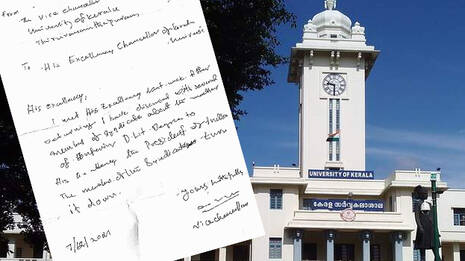 From The Vice Chancellor
University of Kerala
Thiruvananthapuram
To His Excellency Chancellor of Kerala
His Excellency,
I met His Excellency last week. After
returning I have discussed with several
members of Syndicate about the matter
of D Lit Degree to
His Excellency the President of India
The members of the Syndicate turn
it down.
Yours faithfully
Vice chancellor
7/12/2021
UNIVERSITY OF KERALA
കേരള സർവ്വകലാശാല